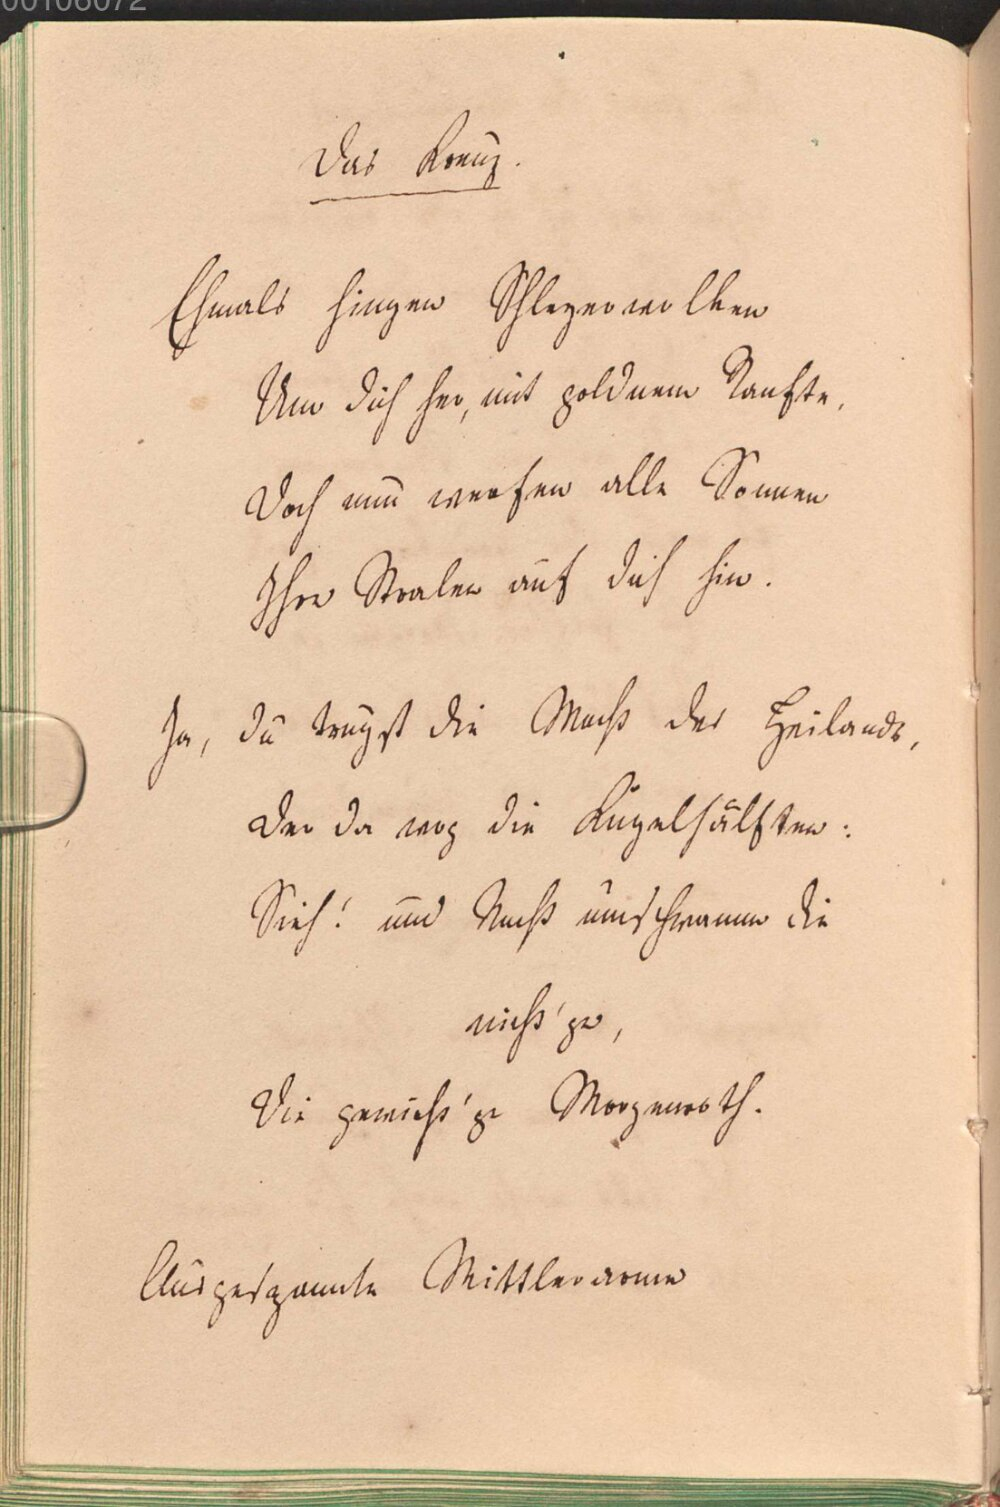 00106072
Das Kreuz.
Ehmals hingen Schleyerwolken
Um dich her, mit goldnem Ranfte,
Doch nun werfen alle Sonnen
Ihre Stralen auf dich hin.
Ja, du trugst die Macht des Heilands,
Der da wog die Kugelhälften:
Sieh! und Nacht umschwamm die
nicht'ge,
Die gewicht'ge Morgenroth.
Ausgespannte Mittlerarme